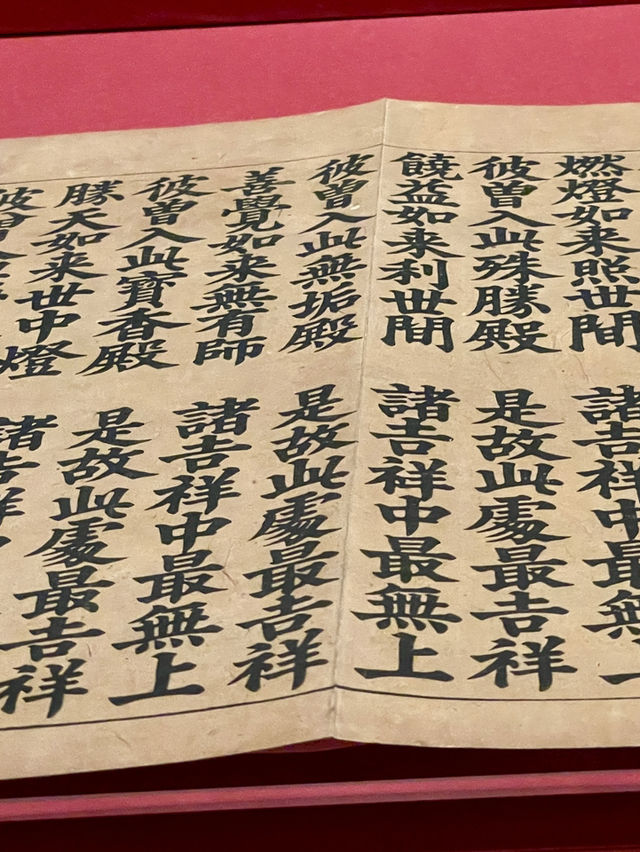 燃燈如来照世間 諸吉祥中最無上
彼曾入此殊勝殿 是故此處最吉祥
饒益如来利世間 諸吉祥中最無上
彼曾入此無垢殿 是故此處最吉祥
善覺如来無有師 諸吉祥中最無上
彼曾入此寶香殿 是故此處最吉祥
勝天如来世中燈 諸吉祥
彼曾